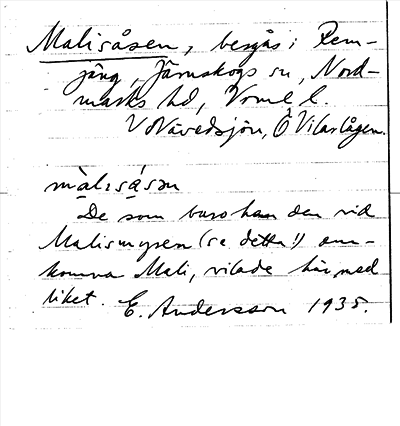 Malisåsen, bergås i Rem-
jäng, Järnskogs sn, Nord-
marks hd, Vrml l.
V Nävedsjön, Ö Vilarlågen.
màlısásən
De som buro hem den vid
Malismyren (se detta!) om-
komna Mali, vilade här med
liket. E. Andersson 1935.